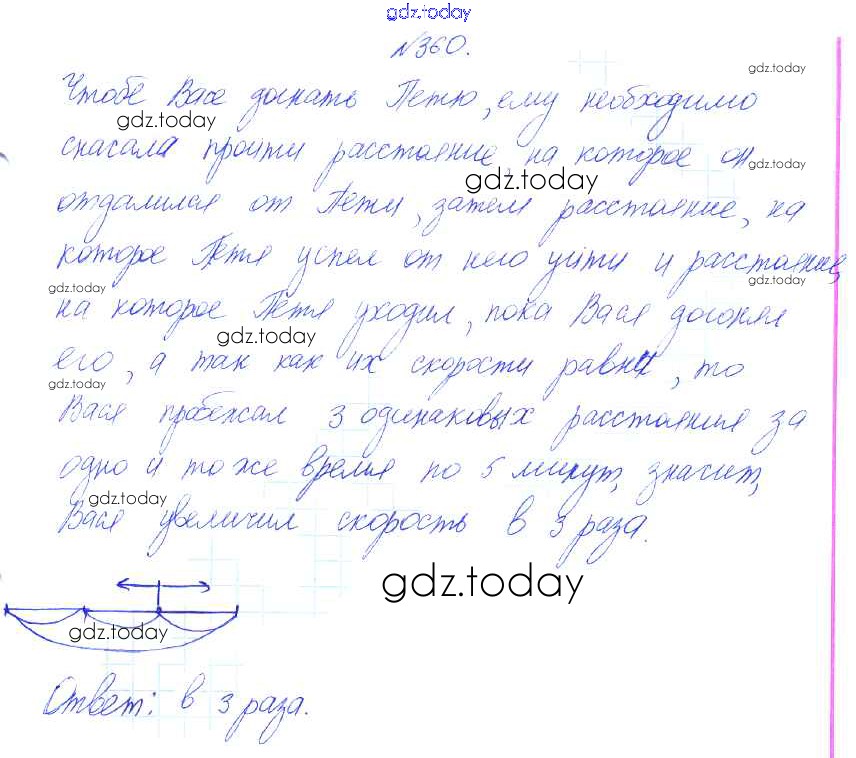 gdz.today
№360.
gdz.today
Чтобы Васе догнать Петю, ему необходимо
gdz.today
сначала пройти расстояние, на которое он
gdz.today
gdz.today
отдалился от Пети, затем расстояние, на
которое Петя успел от него уйти и расстояние,
gdz.today
gdz.today
на которое Петя уходил, пока Вася догонял
gdz.today
его, а так как их скорости равны, то
gdz.today
gdz.today
Вася пробежал 3 одинаковых расстояния за
одно и то же время по 5 минут, значит,
gdz.today
Вася увеличил скорость в 3 раза.
gdz.today
gdz.today
Ответ: в 3 раза.
gdz.today